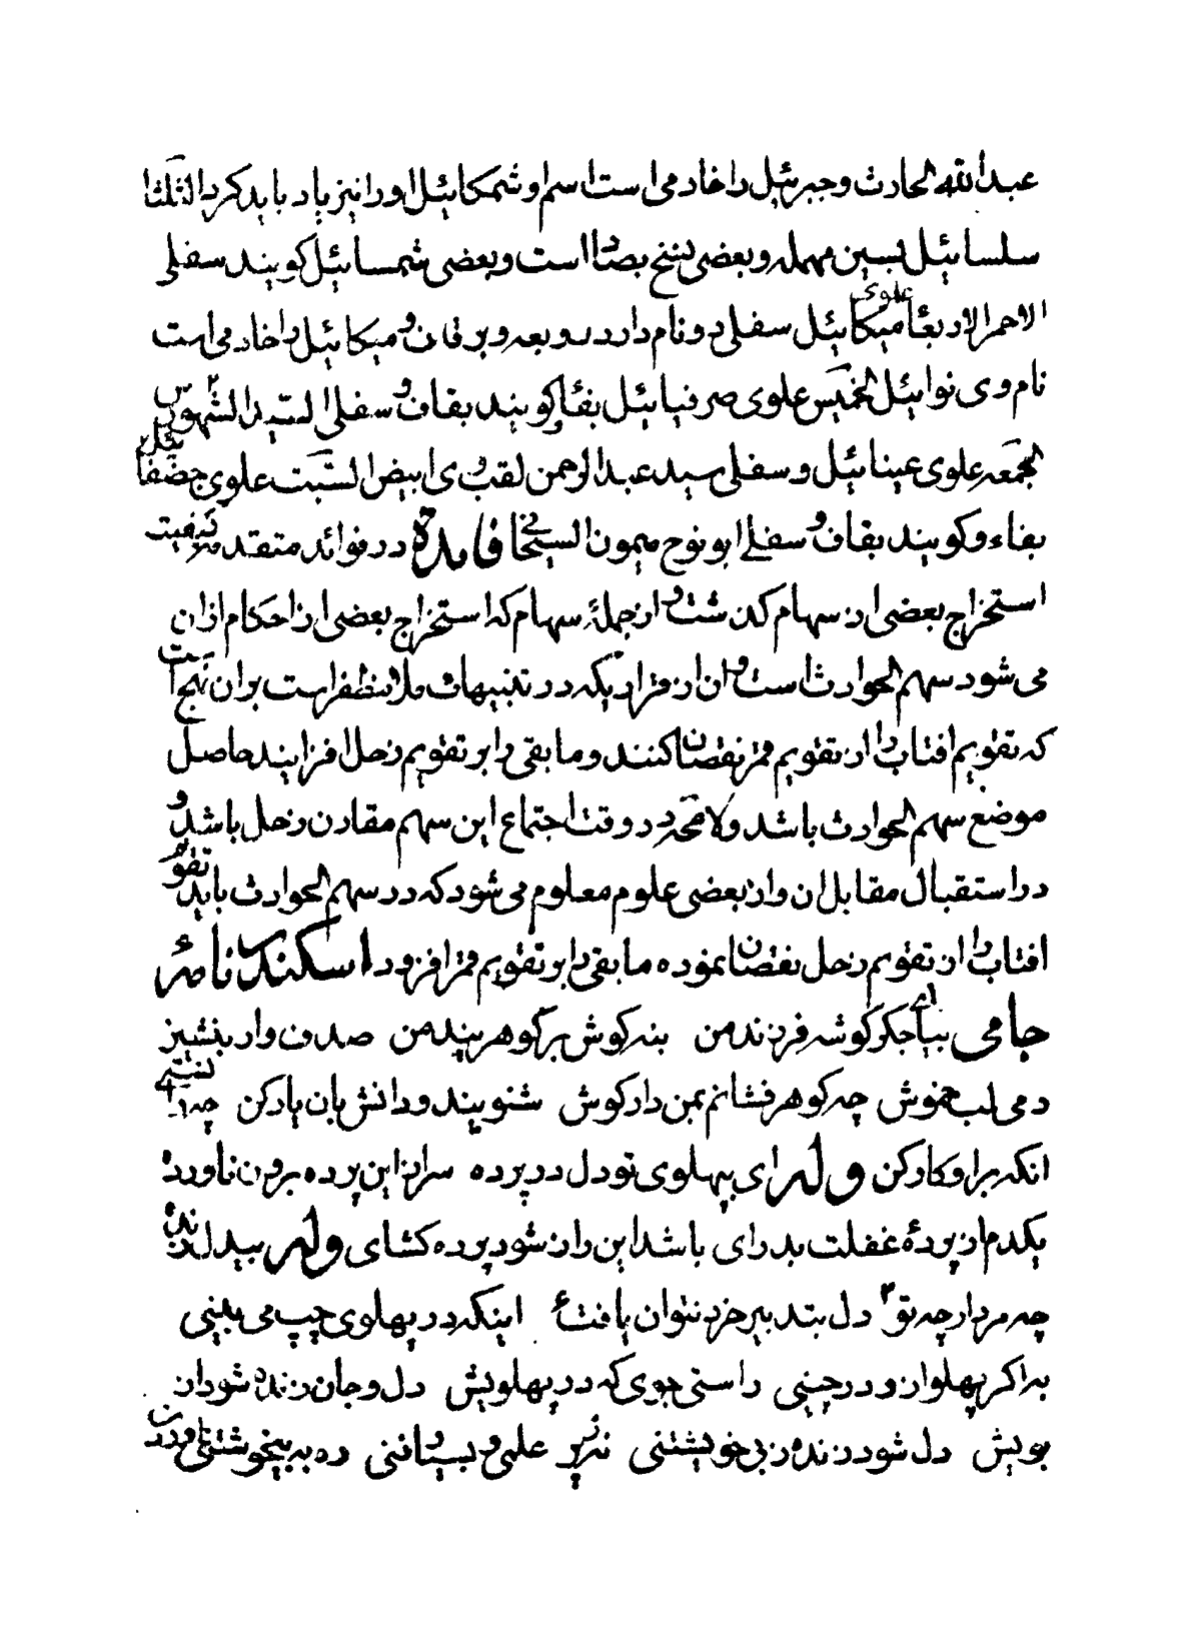 عبدالله الحارث و جبرئیل را خادمی است اسم او شمکائیل او را نیز یاد باید کرد الثلثا
سلسائیل بسین مهمله و بعضی نسخ بصاد است و بعضی شمسائیل کویند سفلی
الاحمر الاربعا میکائیل علوی سفلی دو نام دارد روبعه و برقان و میکائیل را خادمی است
نام وی نوائیل الخمیس علوی صرفیائیل بفا و کویند بقاف و سفلی السید الشمهورس
الجمعه علوی عینائیل و سفلی سید عبد الرحمن لقب وی ابیض السبت علوی
بفاء و کویند بقاف و سفلی ابو نوح میمون السیحا فایدة در فوائد متقدمه کیفیت
استخراج بعضی از سهام کذشت و از جملۀ سهام که استخراج بعضی از احکام از ان
می شود سهم الحوادث است و ان از قراریکه در تنبیهات ملا مظفر است بر ان نهج است
که تقویم افتاب را از تقویم قمر نقصان کنند و ما بقی را بر تقویم زحل افزایند حاصل
موضع سهم الحوادث باشد و لا محه در وقت اجتماع این سهم مقارن زحل باشد و
در استقبال مقابل ان و از بعضی علوم معلوم می شود که در سهم الحوادث باید تقویم
افتاب را از تقویم زحل نقصان نموده ما بقی را بر تقویم قمر افزود اسکندر نامۀ
جامی بیا ای جکر کوشه فرزند من بنه کوش بر کوهر پند من صدف وار بنشین
دمی لب خموش چه کوهر فشانم بمن دار کوش شنو پند و دانش بان یار کن چه دانستی
انکه برا و کار کن وله ای بپهلوی تو دل در پرده سر از این پرده برون ناورده
یکدم از پردۀ غفلت بدرای باشد این راز شود پرده کشای وله بیدلند
چه مردار چه تو دل بتدبیر خرد نتوان یافت اینکه در پهلوی چپ می بینی
به اکر پهلو از و در چینی راستی جوی که در پهلویش دل و جان زنده شود از
بویش دل شود زنده ز بی خویشتنی نه ز پر علمی و بسیار فنی ره به بیخویشتنی